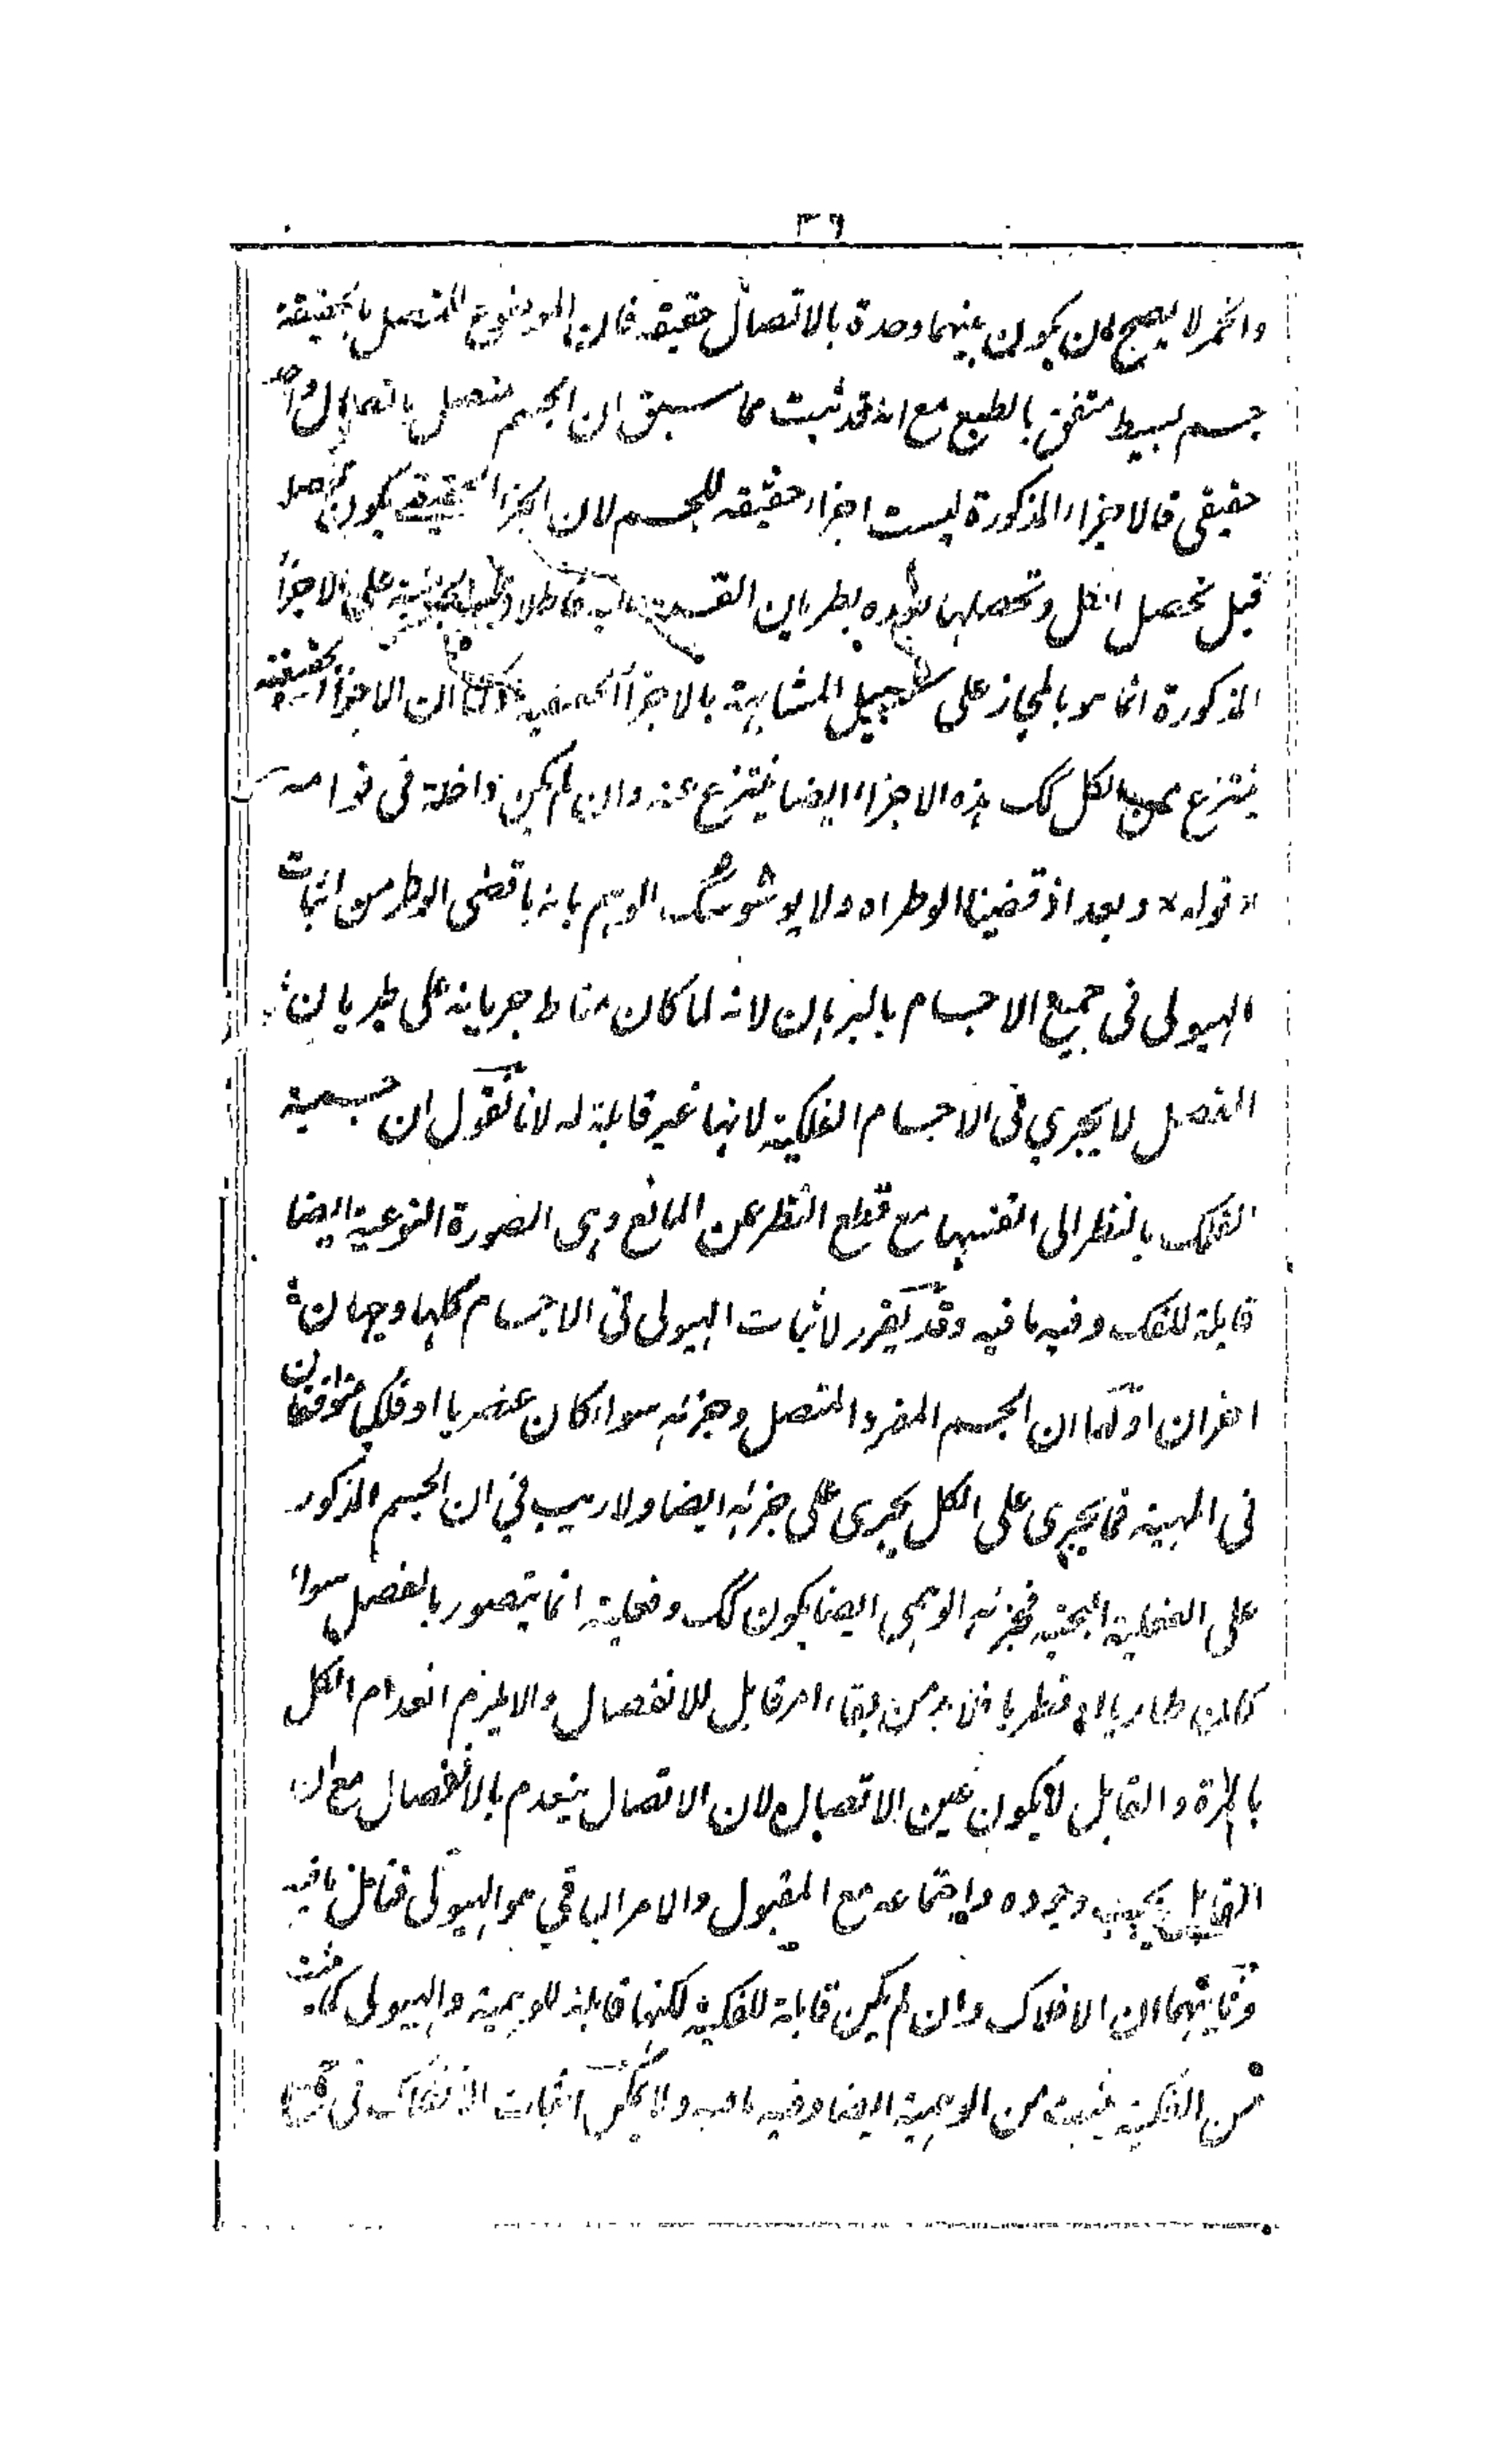 ٣٦
والخمر لا يصح ان يكون بينهما وحدة بالاتصال حقيقة فان الموضوع المتصل بالحقيقة
جسم بسيط متفق بالطبع مع انه قد ثبت مما سبق ان الجسم متصل باتصال واحد
حقيقى فالاجزاء المذكورة ليست اجزاء حقيقه للجسم لان الجزء الحقيقى يكون
قبل تحصل الكل وتحصلها بعده بطريان القسمة عليه فاطلاق الجزئية على الاجزاء
المذكورة انما هو بالمجاز على سبيل المشابهة بالاجزاء الحقيقية كما ان الاجزاء الحقيقية
ينتزع عن الكل كك هذه الاجزاء ايضا ينتزع عنه وان لم يكن داخلة فى قوامه
* قوله * وبعد اذ قضينا الوطر اه ولا يوشوشنك الوهم بانه ما قضى الوطر من اثبات
الهيولى فى جميع الاجسام بالبرهان لانه لما كان مناط جريانه على طريان
الفصل لا يجري فى الاجسام الفلكية لانها غير قابلة له لانا نقول ان جسمية
الفلك بالنظر الى انفسها مع قطع النظر عن المانع وهى الصورة النوعية ايضا
قابلة للفك وفيه ما فيه وقد يقرر لاثبات الهيولى فى الاجسام كلها وجهان
اخران اولهما ان الجسم المفرد المتصل وجزئه سواء كان عنصريا او فلكيا متوافقان
فى المهية فما يجرى على الكل يجرى على جزئه ايضا ولا ريب في ان الجسم المذكور
على الفعلية البحتة فجزئه الوهمى ايضا يكون كك وفعليته انما يتصور بالفصل سواء
كان طاريا او فطريا فلا بد من بقاء امر قابل للانفصال والا يلزم انعدام الكل
بالمرة والقابل لا يكون عين الاتصال لان الاتصال ينعدم بالانفصال مع ان
القابل يجب وجوده واجتماعه مع المقبول والامر الباقي هو الهيولى فتامل ما فيه
وثانيهما ان الافلاك وان لم يكن قابلة للفكية لكنها قابلة للوهمية والهيولى كما تثبت
من الفكية يثبت من الوهمية ايضا وفيه ما فيه ولا يمكن اثبات الانفكاك فى